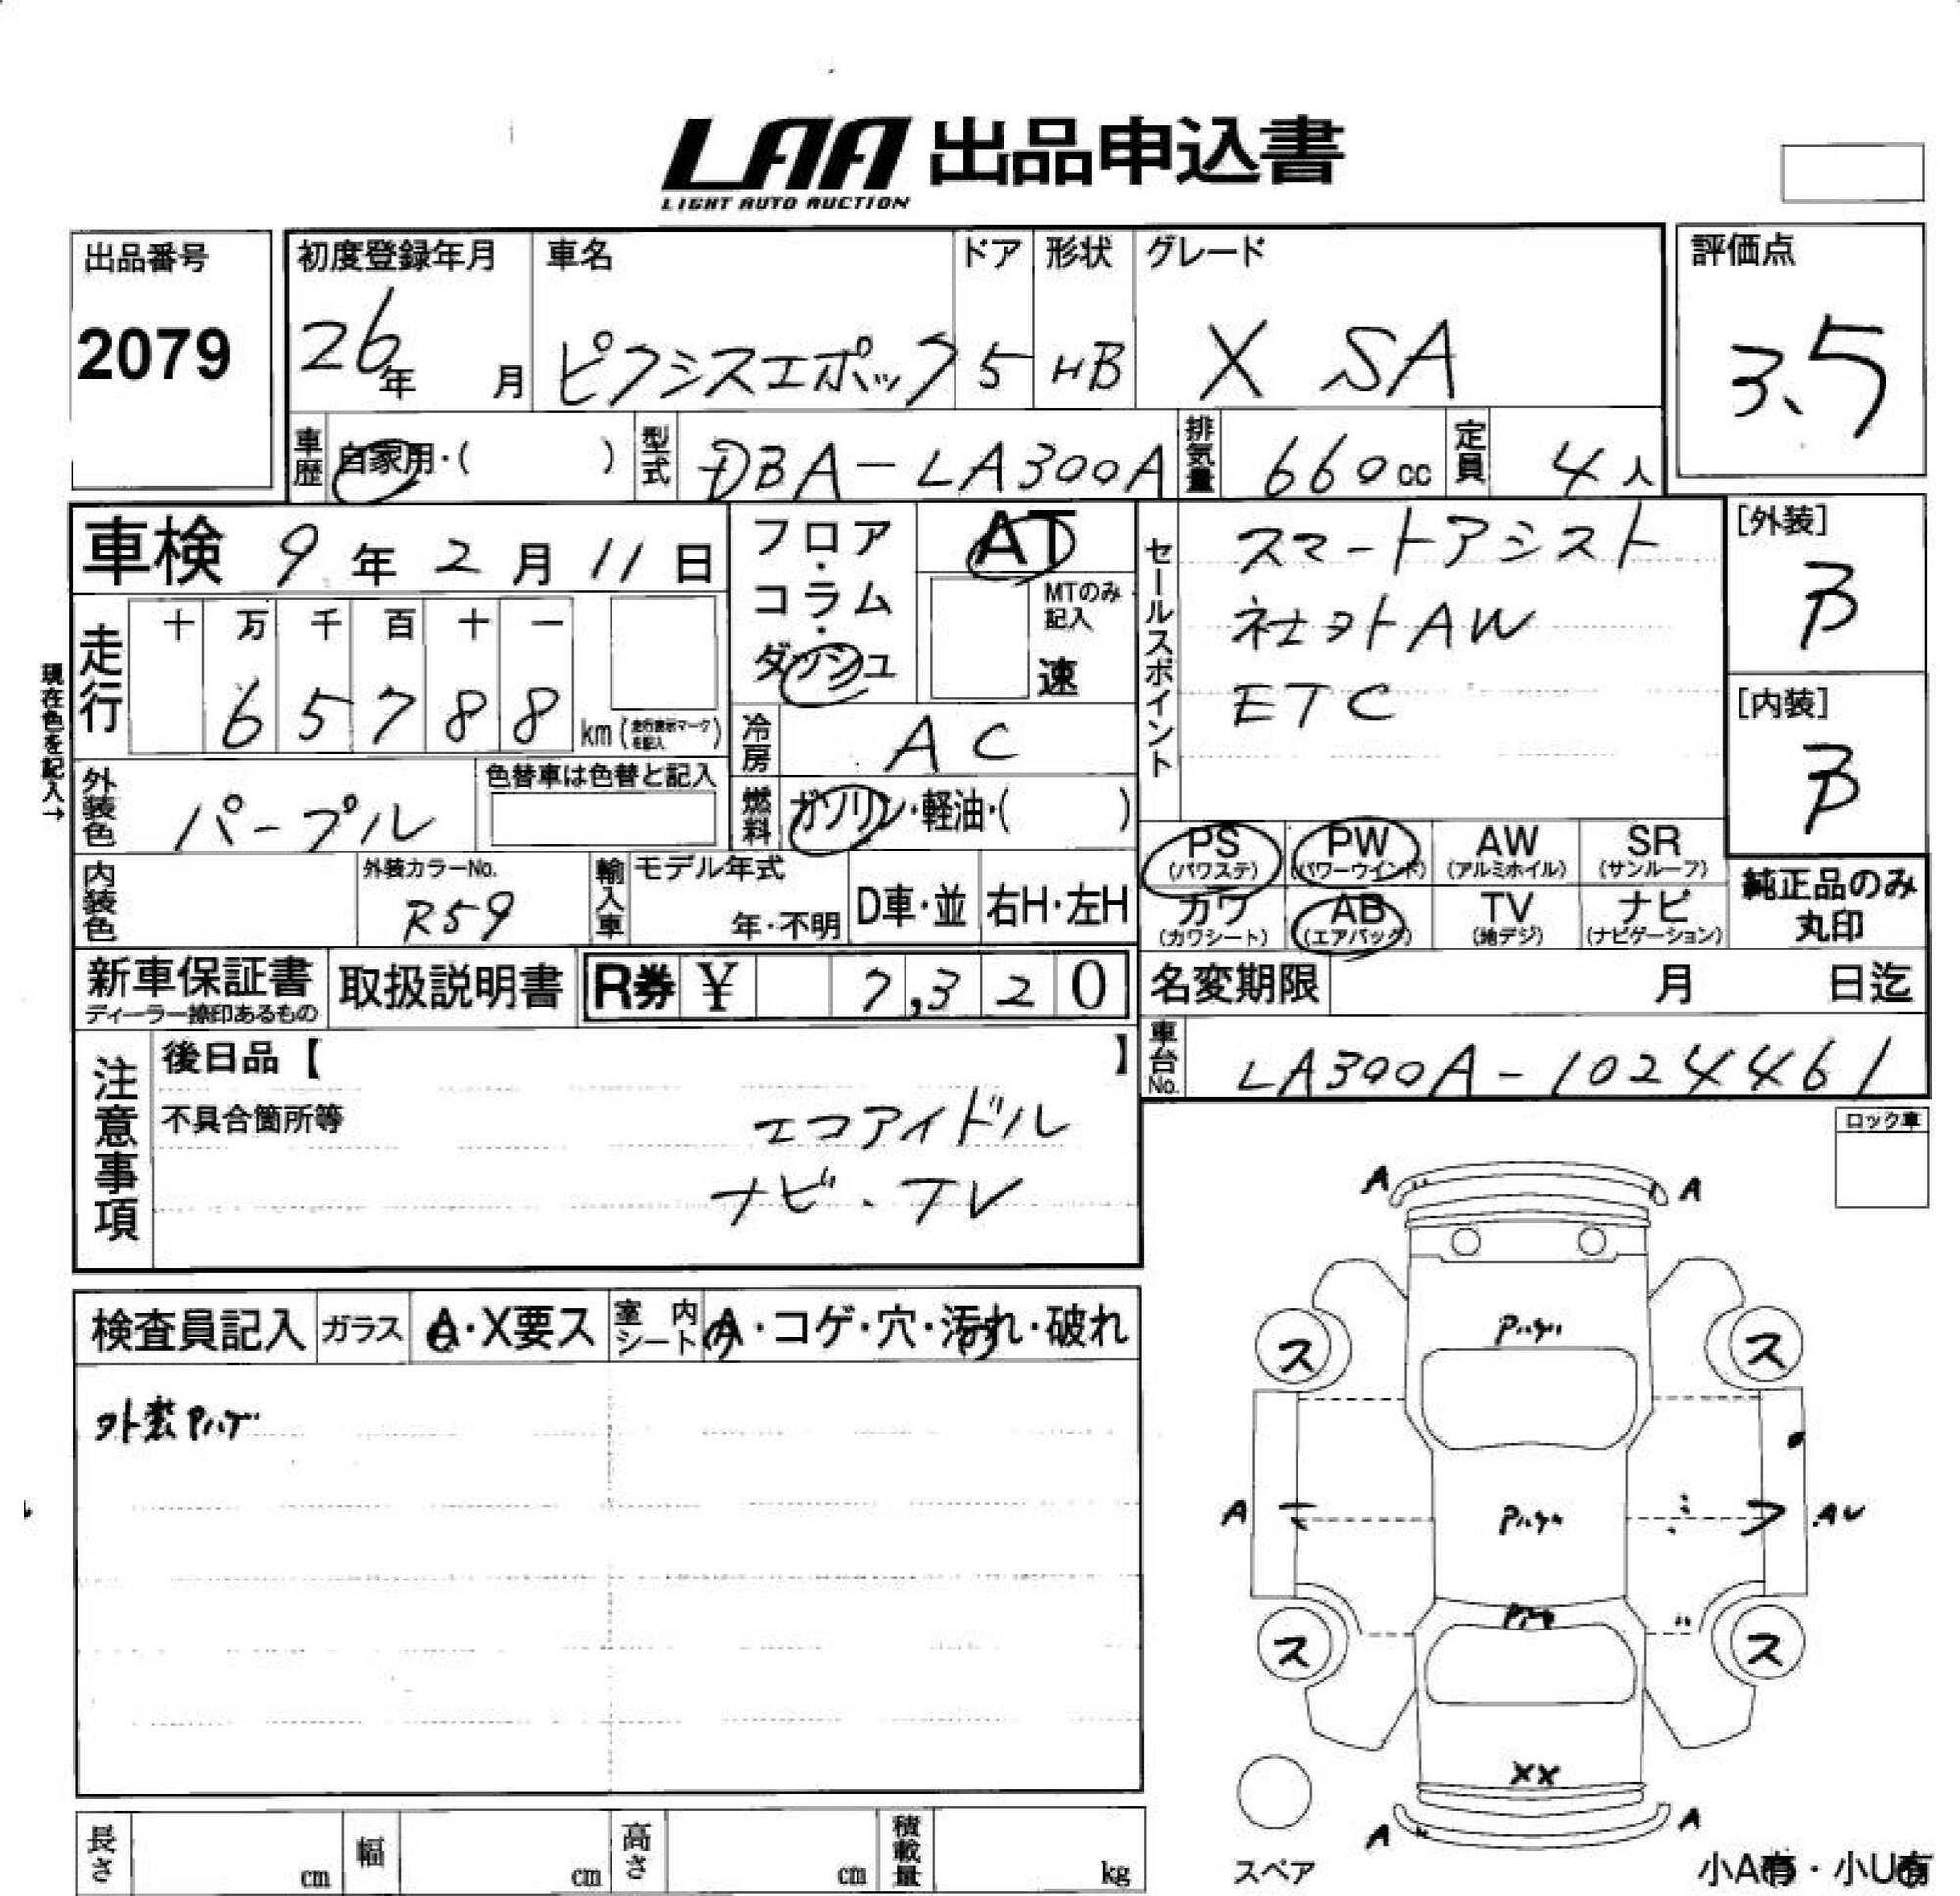 LAA 出品申込書
LIGHT AUTO AUCTION
出品番号
2079
初度登録年月
26年 月
車名
ピクシスエポック
ドア
5
形状
HB
グレード
X SA
評価点
3.5
車歴 自家用・( )
型式 DBA-LA300A
排気量 660cc
定員 4人
車検 9年2月11日
走行 十 万 千 百 十 一
6 5 7 8 8 km(走行表示マークを記入)
現在色を記入→
外装色 パープル
色替車は色替と記入
内装色
外装カラーNo.
R59
フロア・コラム・ダッシュ
AT
MTのみ記入
速
冷房 AC
燃料 ガソリン・軽油・( )
輸入車 モデル年式
年・不明
D車・並
右H・左H
セールスポイント
スマートアシスト
社外AW
ETC
[外装]
B
[内装]
B
PS (パワステ)
PW (パワーウインド)
AW (アルミホイル)
SR (サンルーフ)
カワ (カワシート)
AB (エアバッグ)
TV (地デジ)
ナビ (ナビゲーション)
純正品のみ丸印
新車保証書
ディーラー捺印あるもの
取扱説明書
R券 ¥ 7,320
名変期限 月 日迄
車台No. LA300A-1024461
注意事項
後日品【 】
不具合箇所等
エコアイドル
ナビ・TV
ロック車
検査員記入
ガラス A・X要ス
室内シート A・コゲ・穴・汚れ・破れ
外装Pハゲ
A A
Pハゲ
ス ス
A Pハゲ AU
ス ス
XX
A A
スペア
小A有・小U有
長さ cm
幅 cm
高さ cm
積載量 kg